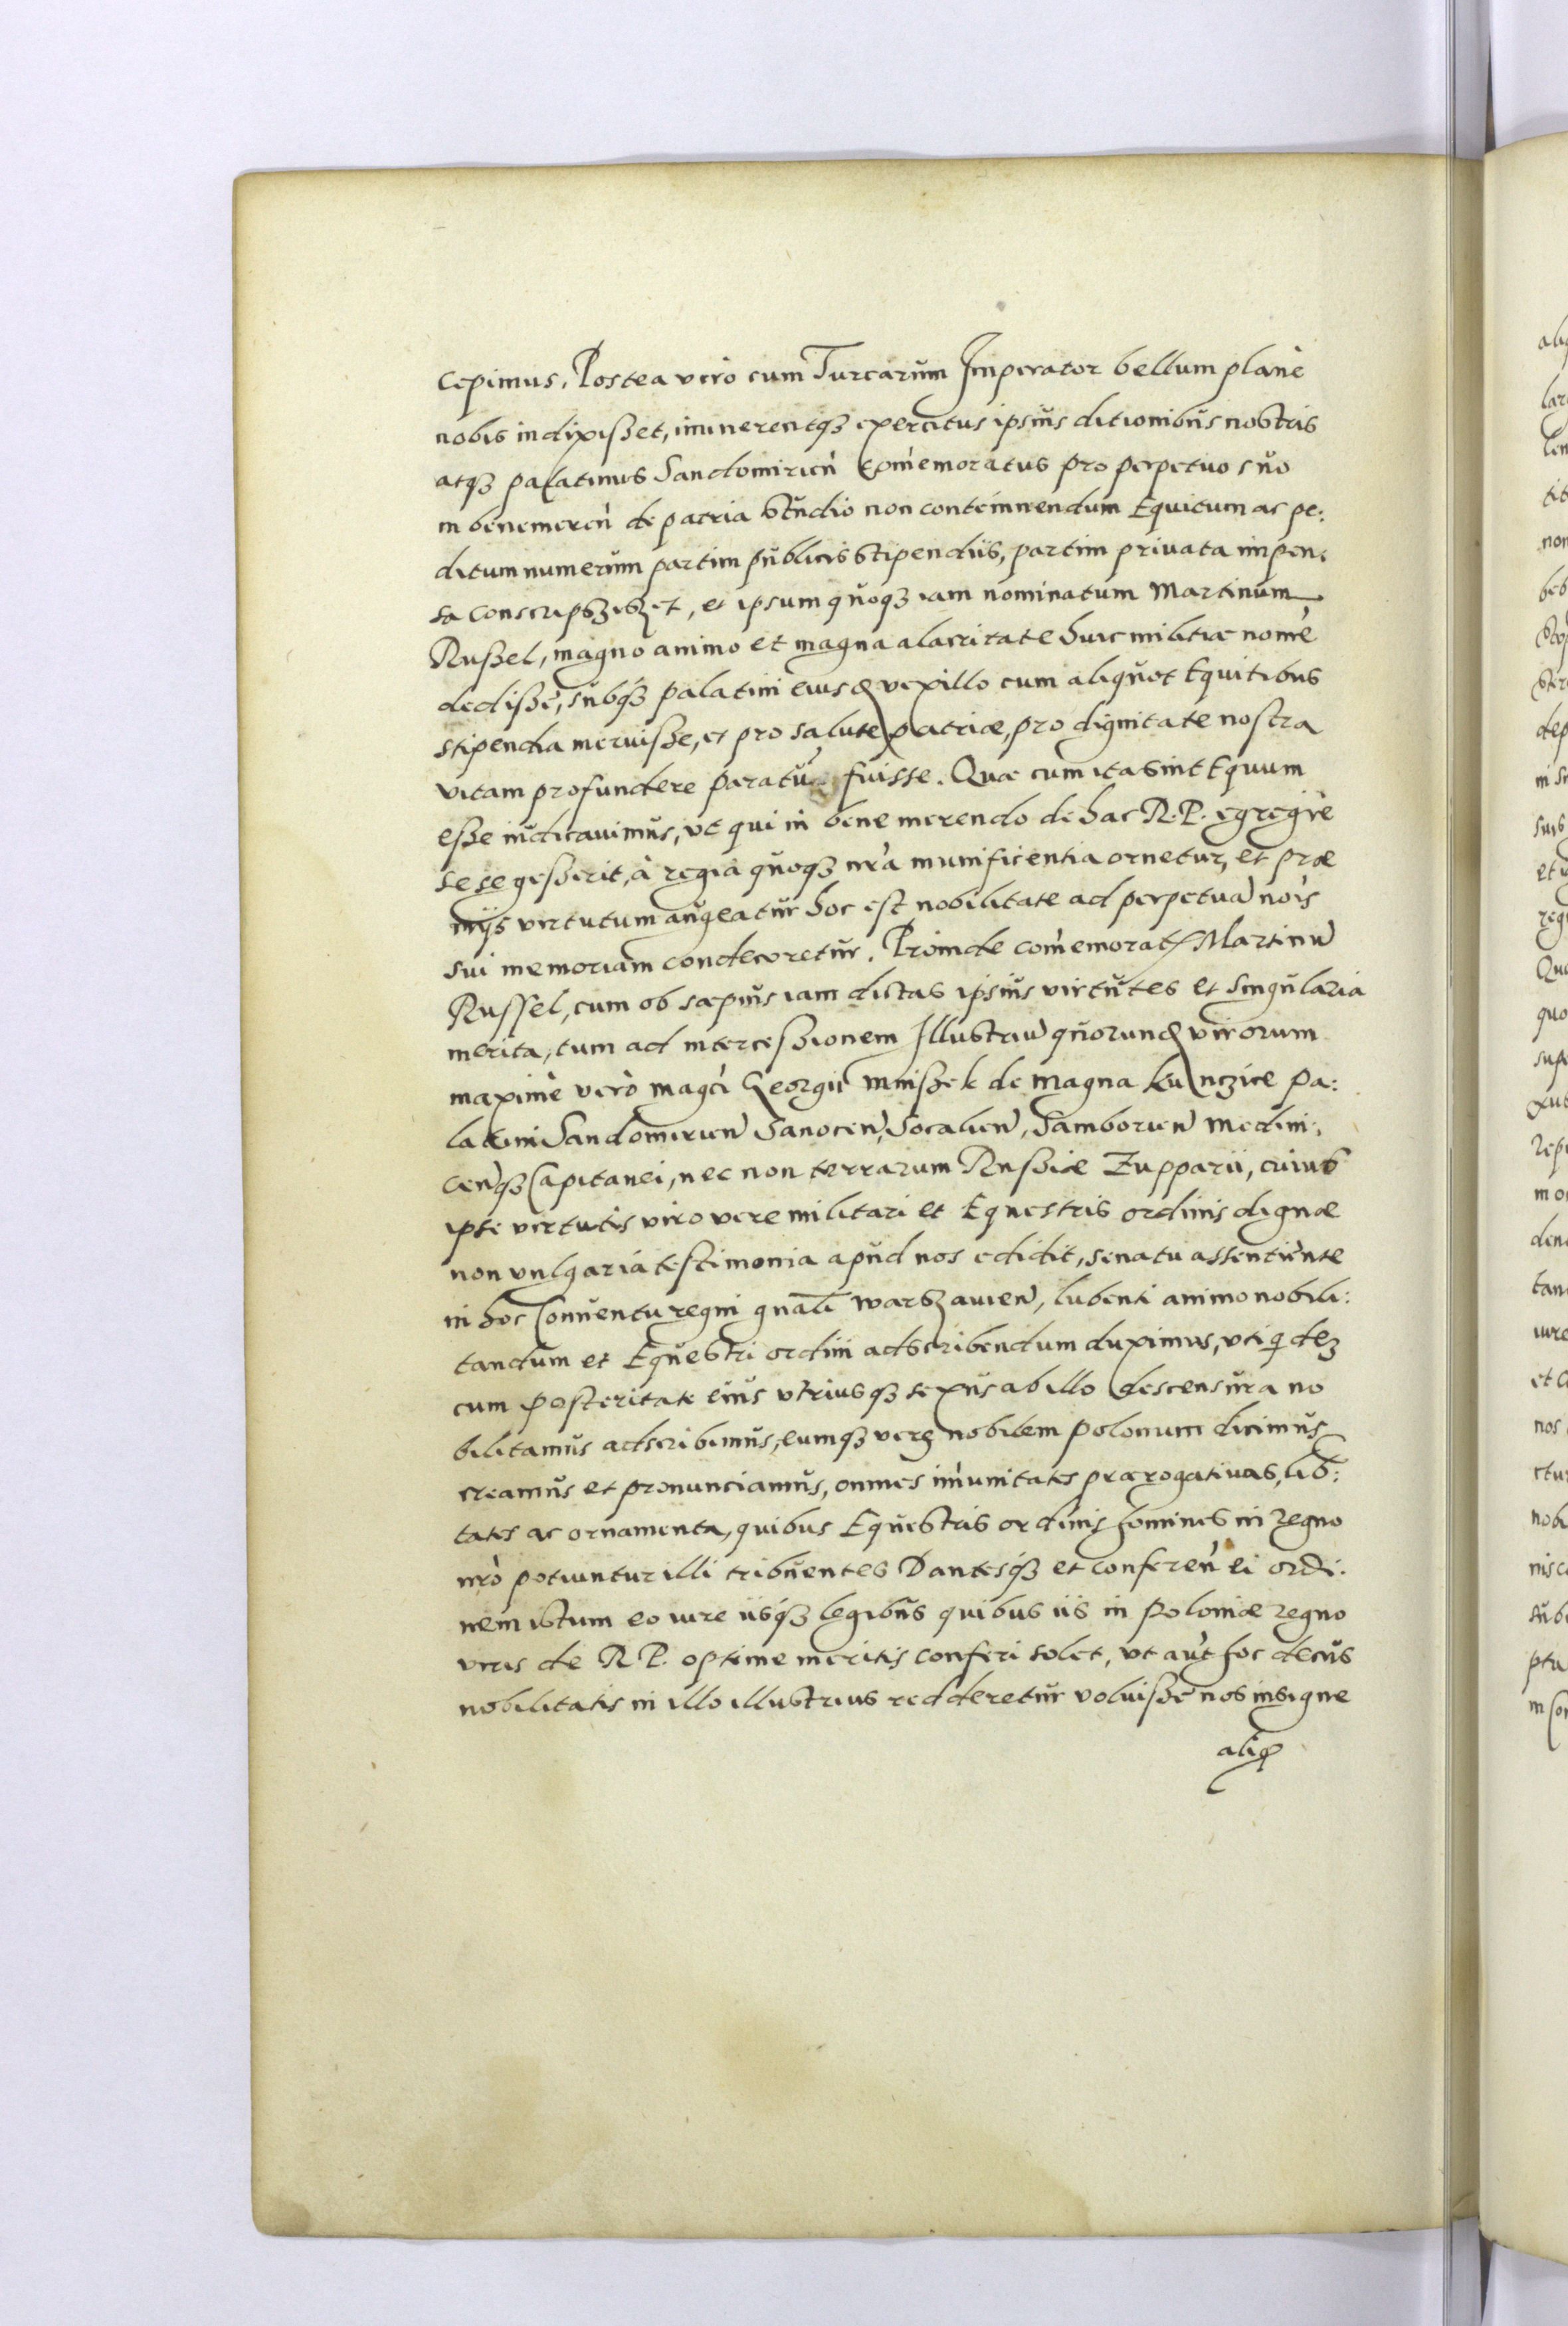 cepimus, Postea verò cum Turcarum Imperator bellum planè
nobis indixißet, iminerentqꝫ exercitus ipsius ditionibus nostris
atqꝫ palatinus Sandomirien̄ com̄emoratus pro perpetuo suo
in benemeren̄ de patria studio non contemnendum Equitum ac pe:
ditum numerum partim publicis stipendiis, partim privata impen:
sa conscripsißet, et ipsum quoqꝫ iam nominatum Martinum
Rußel, magno animo et magna alacritate huic militiæ nomē
dedißē, subqꝫ palatini eiusd vexillo cum aliquot Equitibus
stipendia meruiße, et pro salute patriæ, pro dignitate nostra
vitam profundere paratū fuisse. Quæ cum ita sint Equum
eße iudicavimus, ut qui in bene merendo de hac R. P. egregiè
sese geßerit, à regia quoqꝫ nr̄a munificentia ornetur, et præ
mijs virtutum augeatur hoc est nobilitate ad perpetuā nōis
sui memoriam condecoretur. Proinde com̄emorat Martinū
Russel, cum ob sæpius iam dictas ipsius virtutes et singularia
merita, tum ad interceßionem Illustriū quorund virorum
maximè verò magci Georgii Mnißek de magna kunczice pa:
latini Sandomirien̄ Sanocen̄, Socalien̄, Samborien̄ Medini:
cen̄qꝫ Capitanei, nec non terrarum Rußiæ Zupparii, cuius
ipse virtutis viro vere militari et Equestris ordinis dignæ
non vulgaria testimonia apud nos edidit, senatu assentiente
in hoc Conventu regni gnāli warszavien̄, lubenti animo nobili:
tandum et Equestri ordini adscribendum duximus, uti qdeꝫ
cum posteritate eius utriusqꝫ sexus ab illo descensura no
bilitamus adscribimus, eumqꝫ verꝫ nobilem polonum dicimus
creamus et pronunciamus, omnes im̄unitates prærogativas, lib̄:
tates ac ornamenta, quibus Equestris ordinis homines in regno
nrò potiuntur illi tribuentes Dantesqꝫ et conferen̄ ei ordi:
nem istum eo iure iisqꝫ legibus quibus iis in poloniæ regno
viris de R P. optime meritis conferi solet, ut aūt hoc decus
nobilitatis in illo illustrius redderetur voluißē nos insigne
aliqꝫ